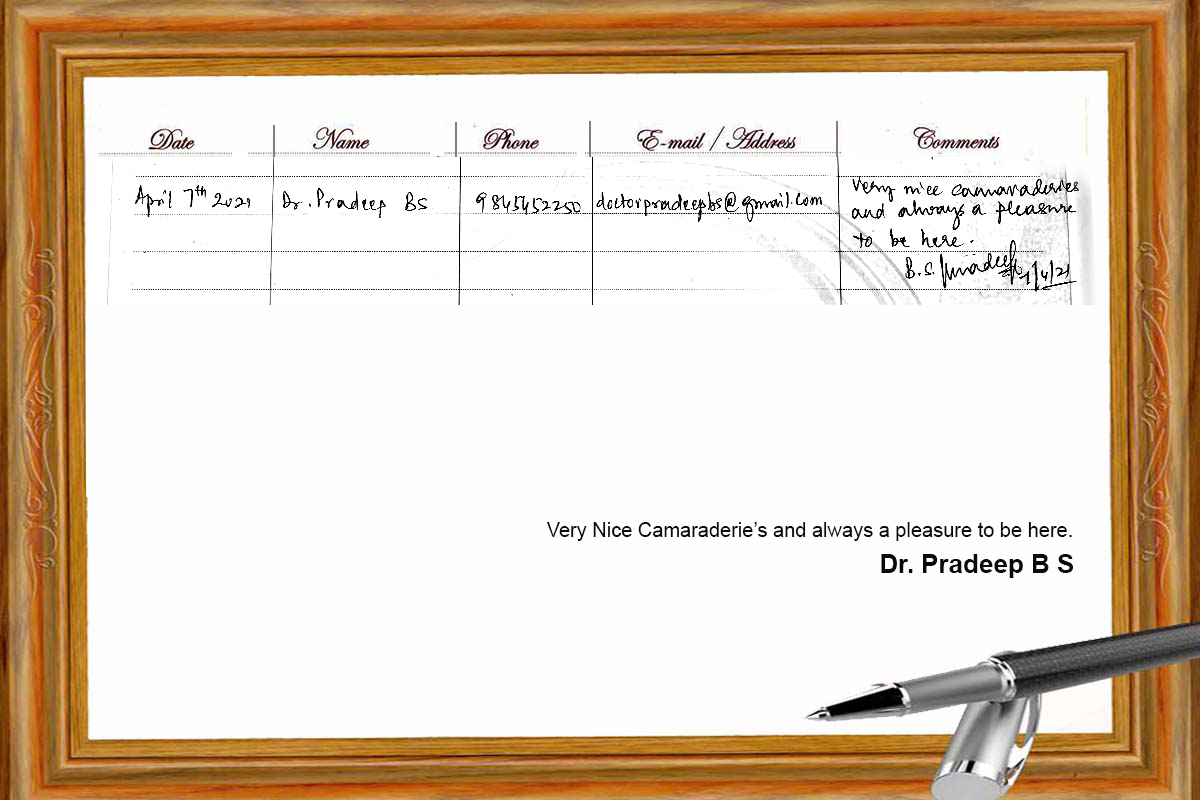 Date Name Phone E-mail / Address Comments
April 7th 2021 Dr. Pradeep BS 9845452250 doctorpradeepbs@gmail.com
Very nice camaraderies
and always a pleasure
to be here.
B.S. Pradeep 7/4/21
Very Nice Camaraderie’s and always a pleasure to be here.
Dr. Pradeep B S